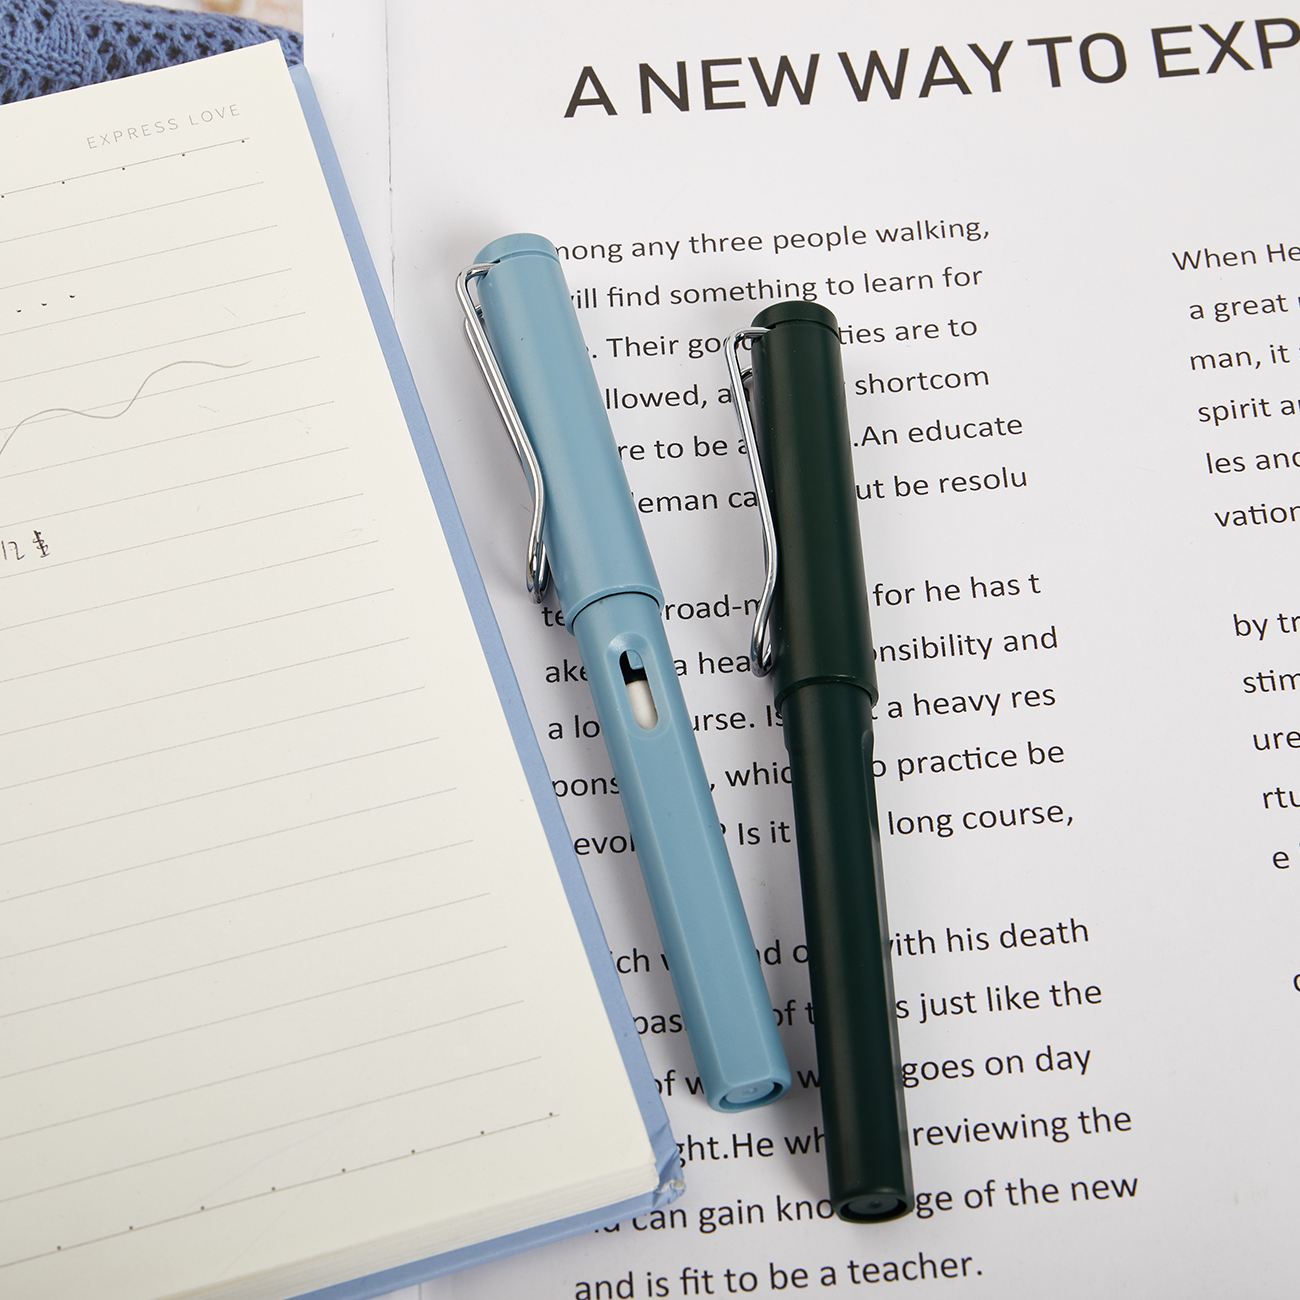 EXPRESS LOVE
12 $
A NEW WAY TO EXP
mong any three people walking,
will find something to learn for
. Their good ties are to
llowed, a shortcom
re to be a .An educate
leman ca ut be resolu
te road-m for he has t
ake a hea onsibility and
a lo urse. Is t a heavy res
pons , whic o practice be
evol ? Is it long course,
ich w nd o with his death
pas of t s just like the
of w w goes on day
ght.He wh reviewing the
nd can gain kno ge of the new
and is fit to be a teacher.
When He
a great
man, it
spirit a
les and
vation
by tr
stim
ure
rtu
e